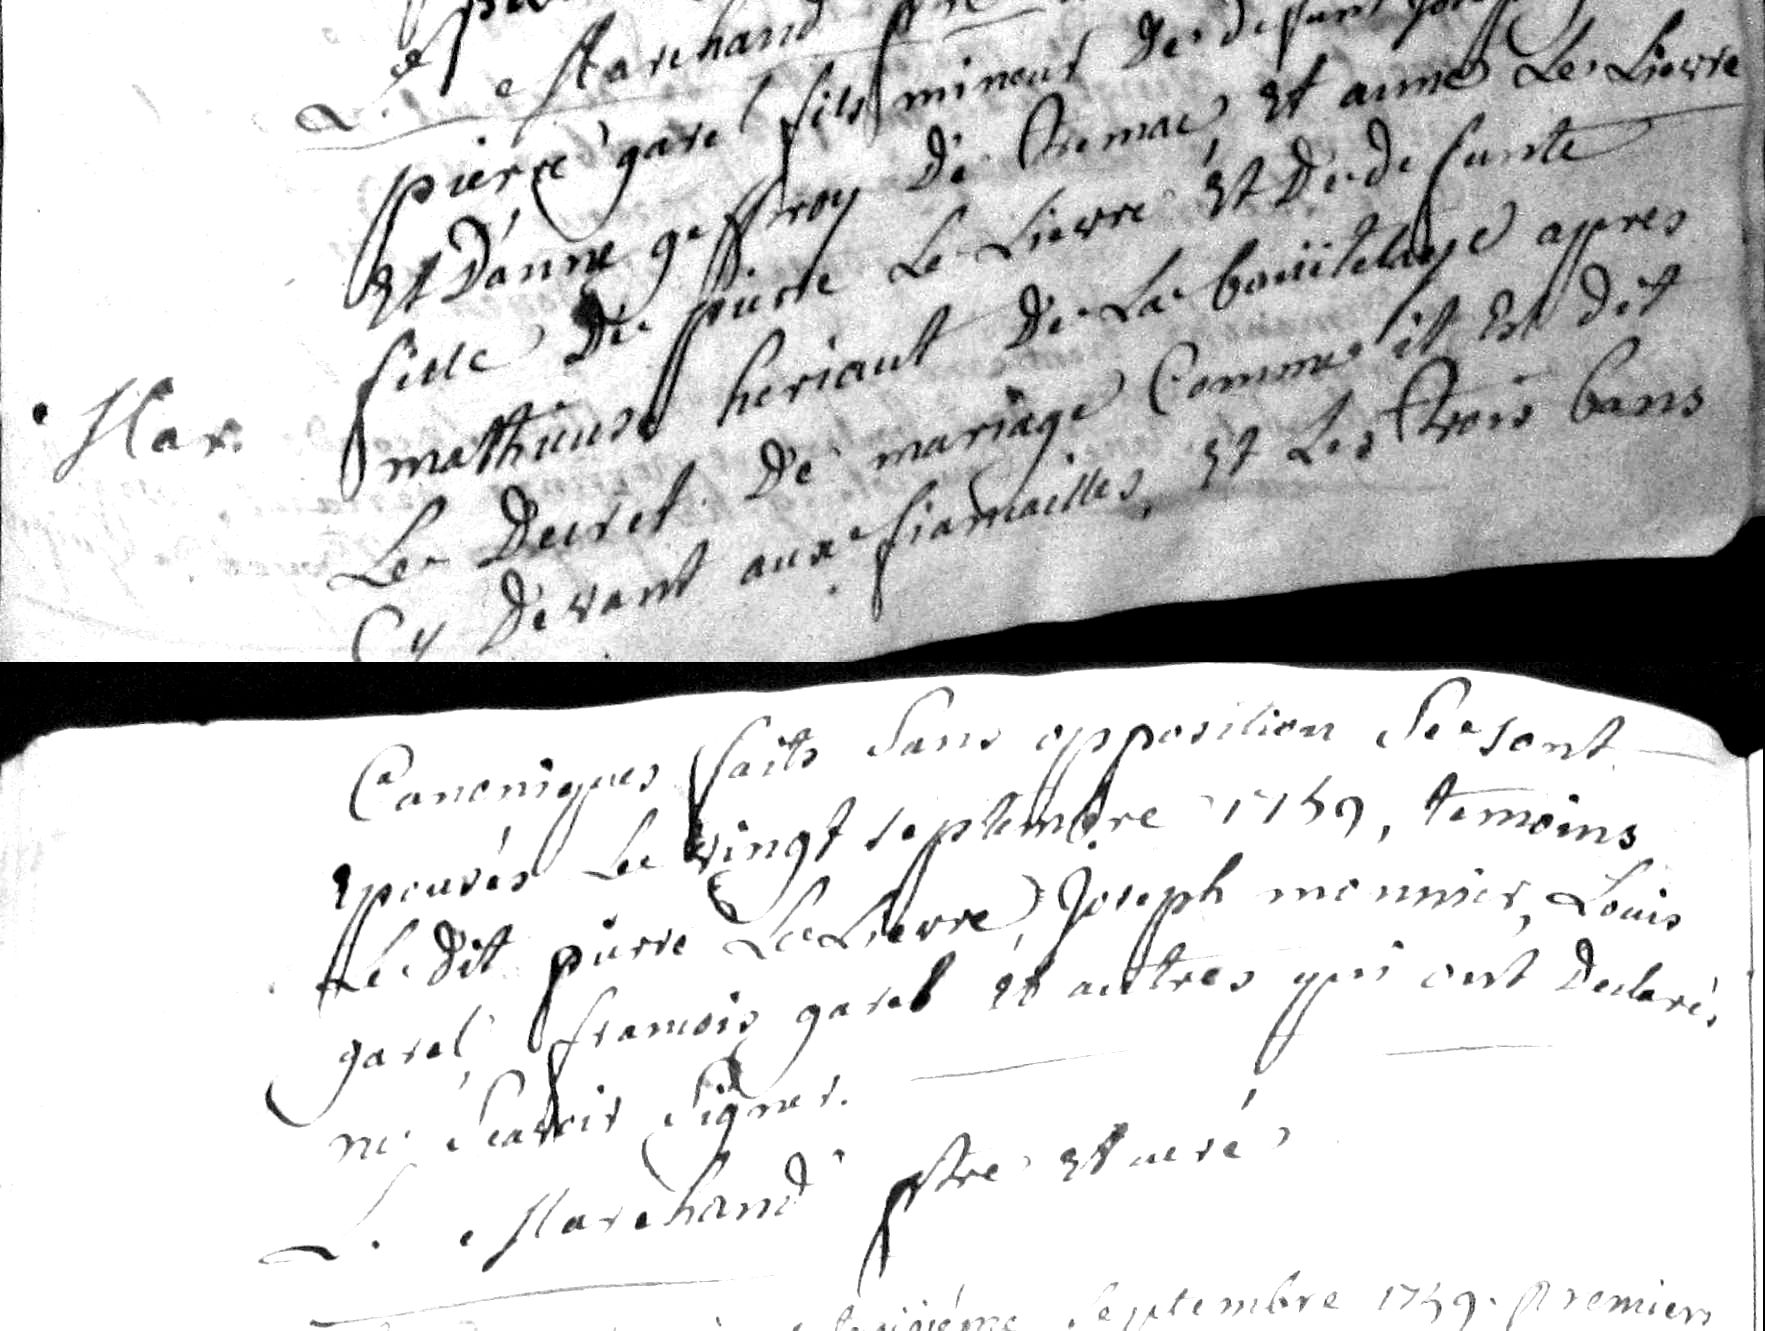 L. Marchand
pierre garel fils mineur De deffunt
Et D'anne geffroy De Tremac, Et anne Le Lievre
fille De pierre Le Lievre Et De defunte
Mar. mathurine heriaut De La boüitelaye apres
Le Decret De mariage Comme it Est dit
Cy Devant aux fiancailles, Et Les trois bans
Canoniques faits Sans opposition Se sont
Epousés Le vingt septembre 1759, temoins
Le Dit pierre Le Lievre, Joseph monnier, Louis
garel, francois garel Et autres qui ont Declarés
ne Scavoir Signer.
L. Marchand ptre Et curé
Septembre 1759. premiers